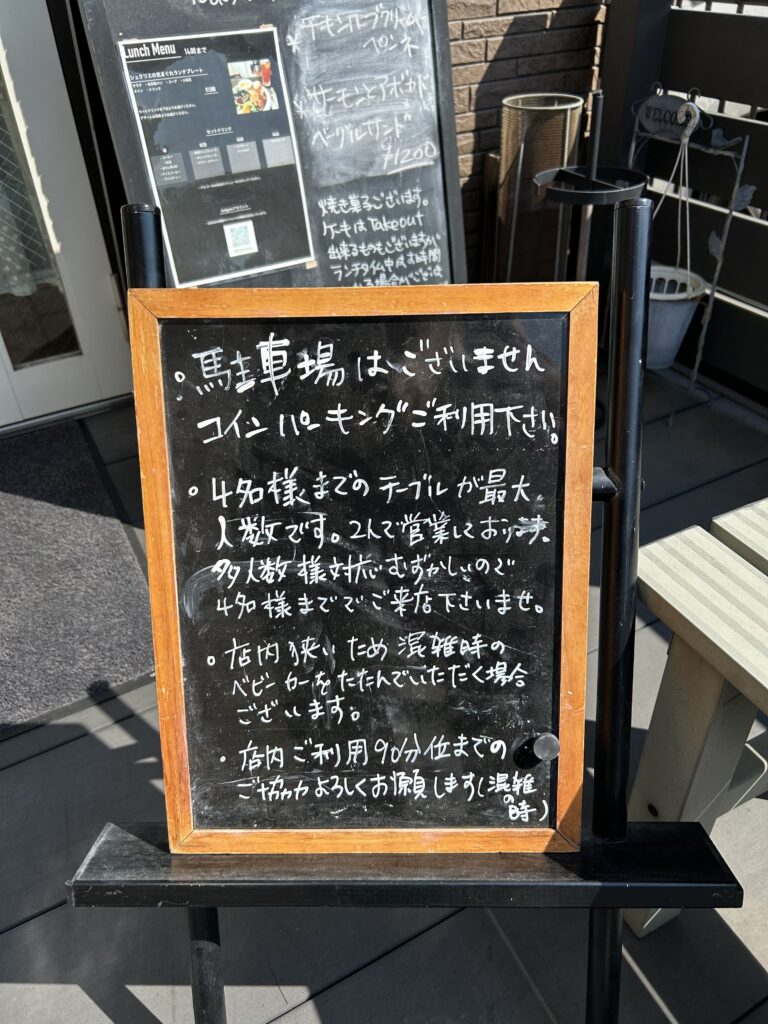 Lunch Menu 14:00まで
チキンとクリーム
ペンネ
サーモンとアボカド
ベーグルサンド
¥1200
焼き菓子ございます。
ケーキはTakeout
出来るものもございますが
ランチタイム中
WELCOME
。駐車場はございません
コインパーキングご利用下さい。
。4名様までのテーブルが最大
人数です。2人で営業しており
多人数様対応むずかしいので
4名様まででご来店下さいませ。
。店内狭いため混雑時の
ベビーカーをたたんでいただく場合
ございます。
・店内ご利用90分位までの
ご協力よろしくお願します(混雑の時)